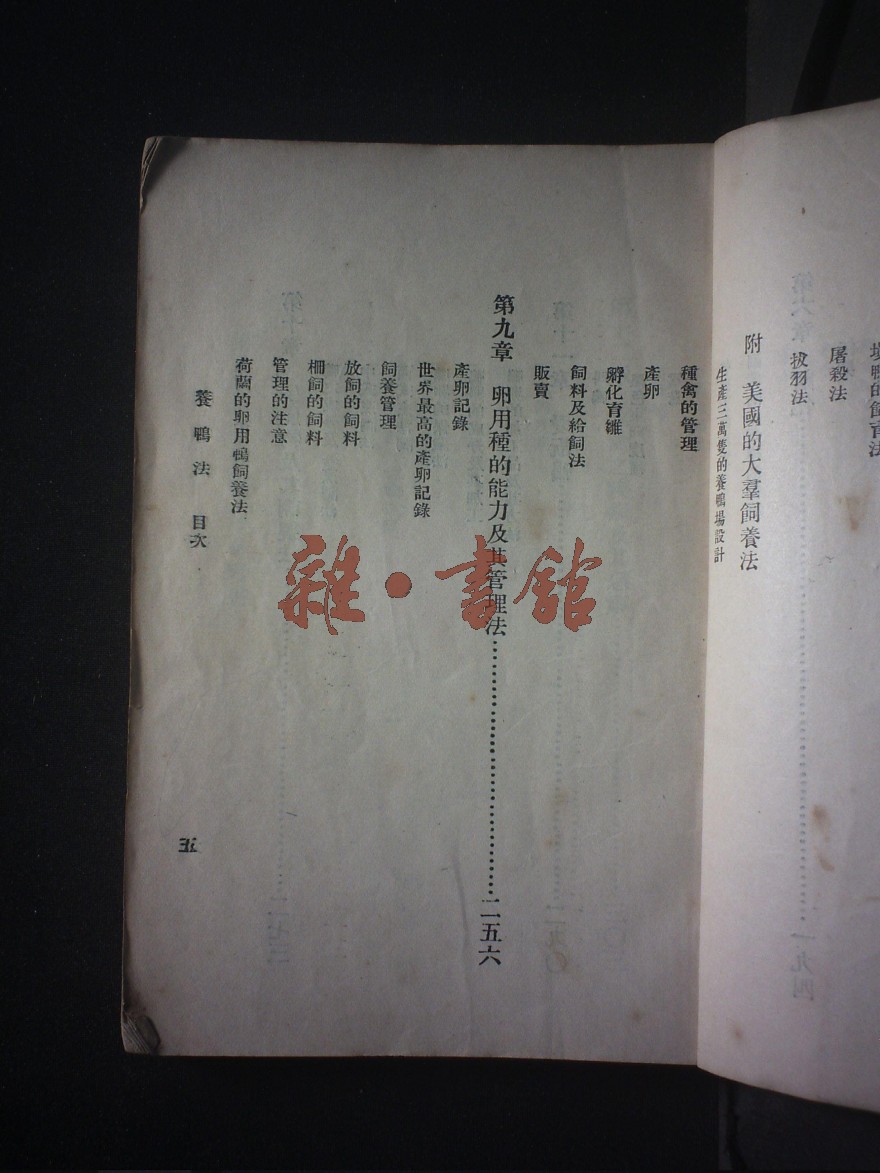 填鴨的飼育法
屠殺法
拔羽法
附　美國的大羣飼養法
生產三萬隻的養鴨場設計
種禽的管理
產卵
孵化育雛
飼料及給飼法
販賣
第九章　卵用種的能力及其管理法……………………二五六
產卵記錄
世界最高的產卵記錄
飼養管理
放飼的飼料
柵飼的飼料
管理的注意
荷蘭的卵用鴨飼養法
養鴨法　目次
五
雜·書館